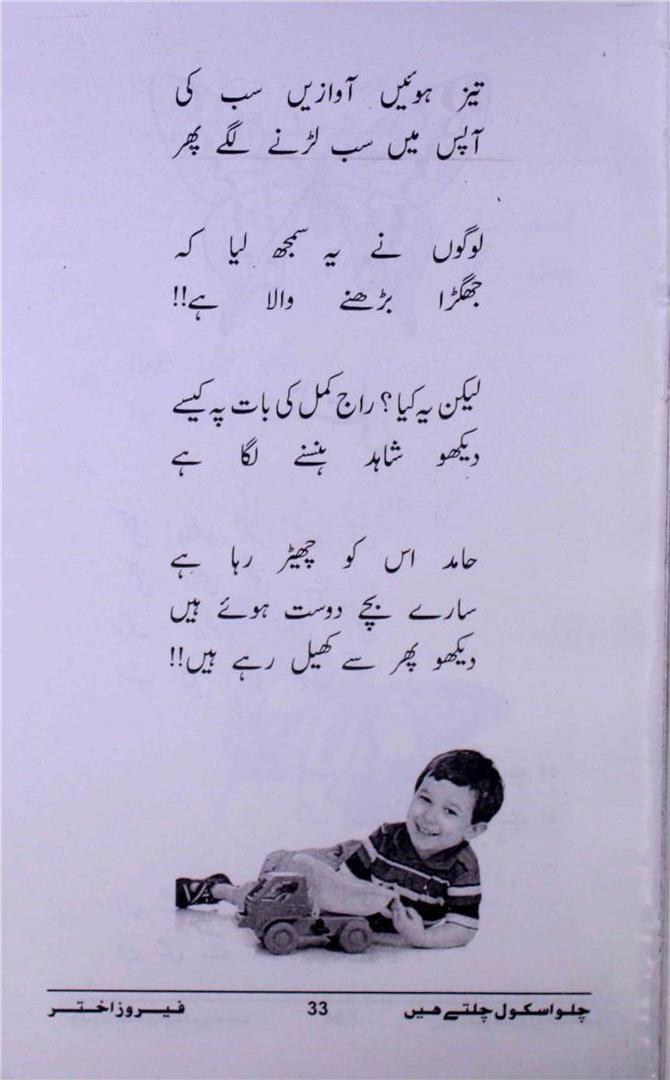 تیز ہوئیں آوازیں سب کی
آپس میں سب لڑنے لگے پھر
لوگوں نے یہ سمجھ لیا کہ
جھگڑا بڑھنے والا ہے!!
لیکن یہ کیا؟ راج کمل کی بات پہ کیسے
دیکھو شاہد ہنسنے لگا ہے
حامد اس کو چھیڑ رہا ہے
سارے بچے دوست ہوئے ہیں
دیکھو پھر سے کھیل رہے ہیں!!
چلو اسکول چلتے ھیں 33 فیروز اختر